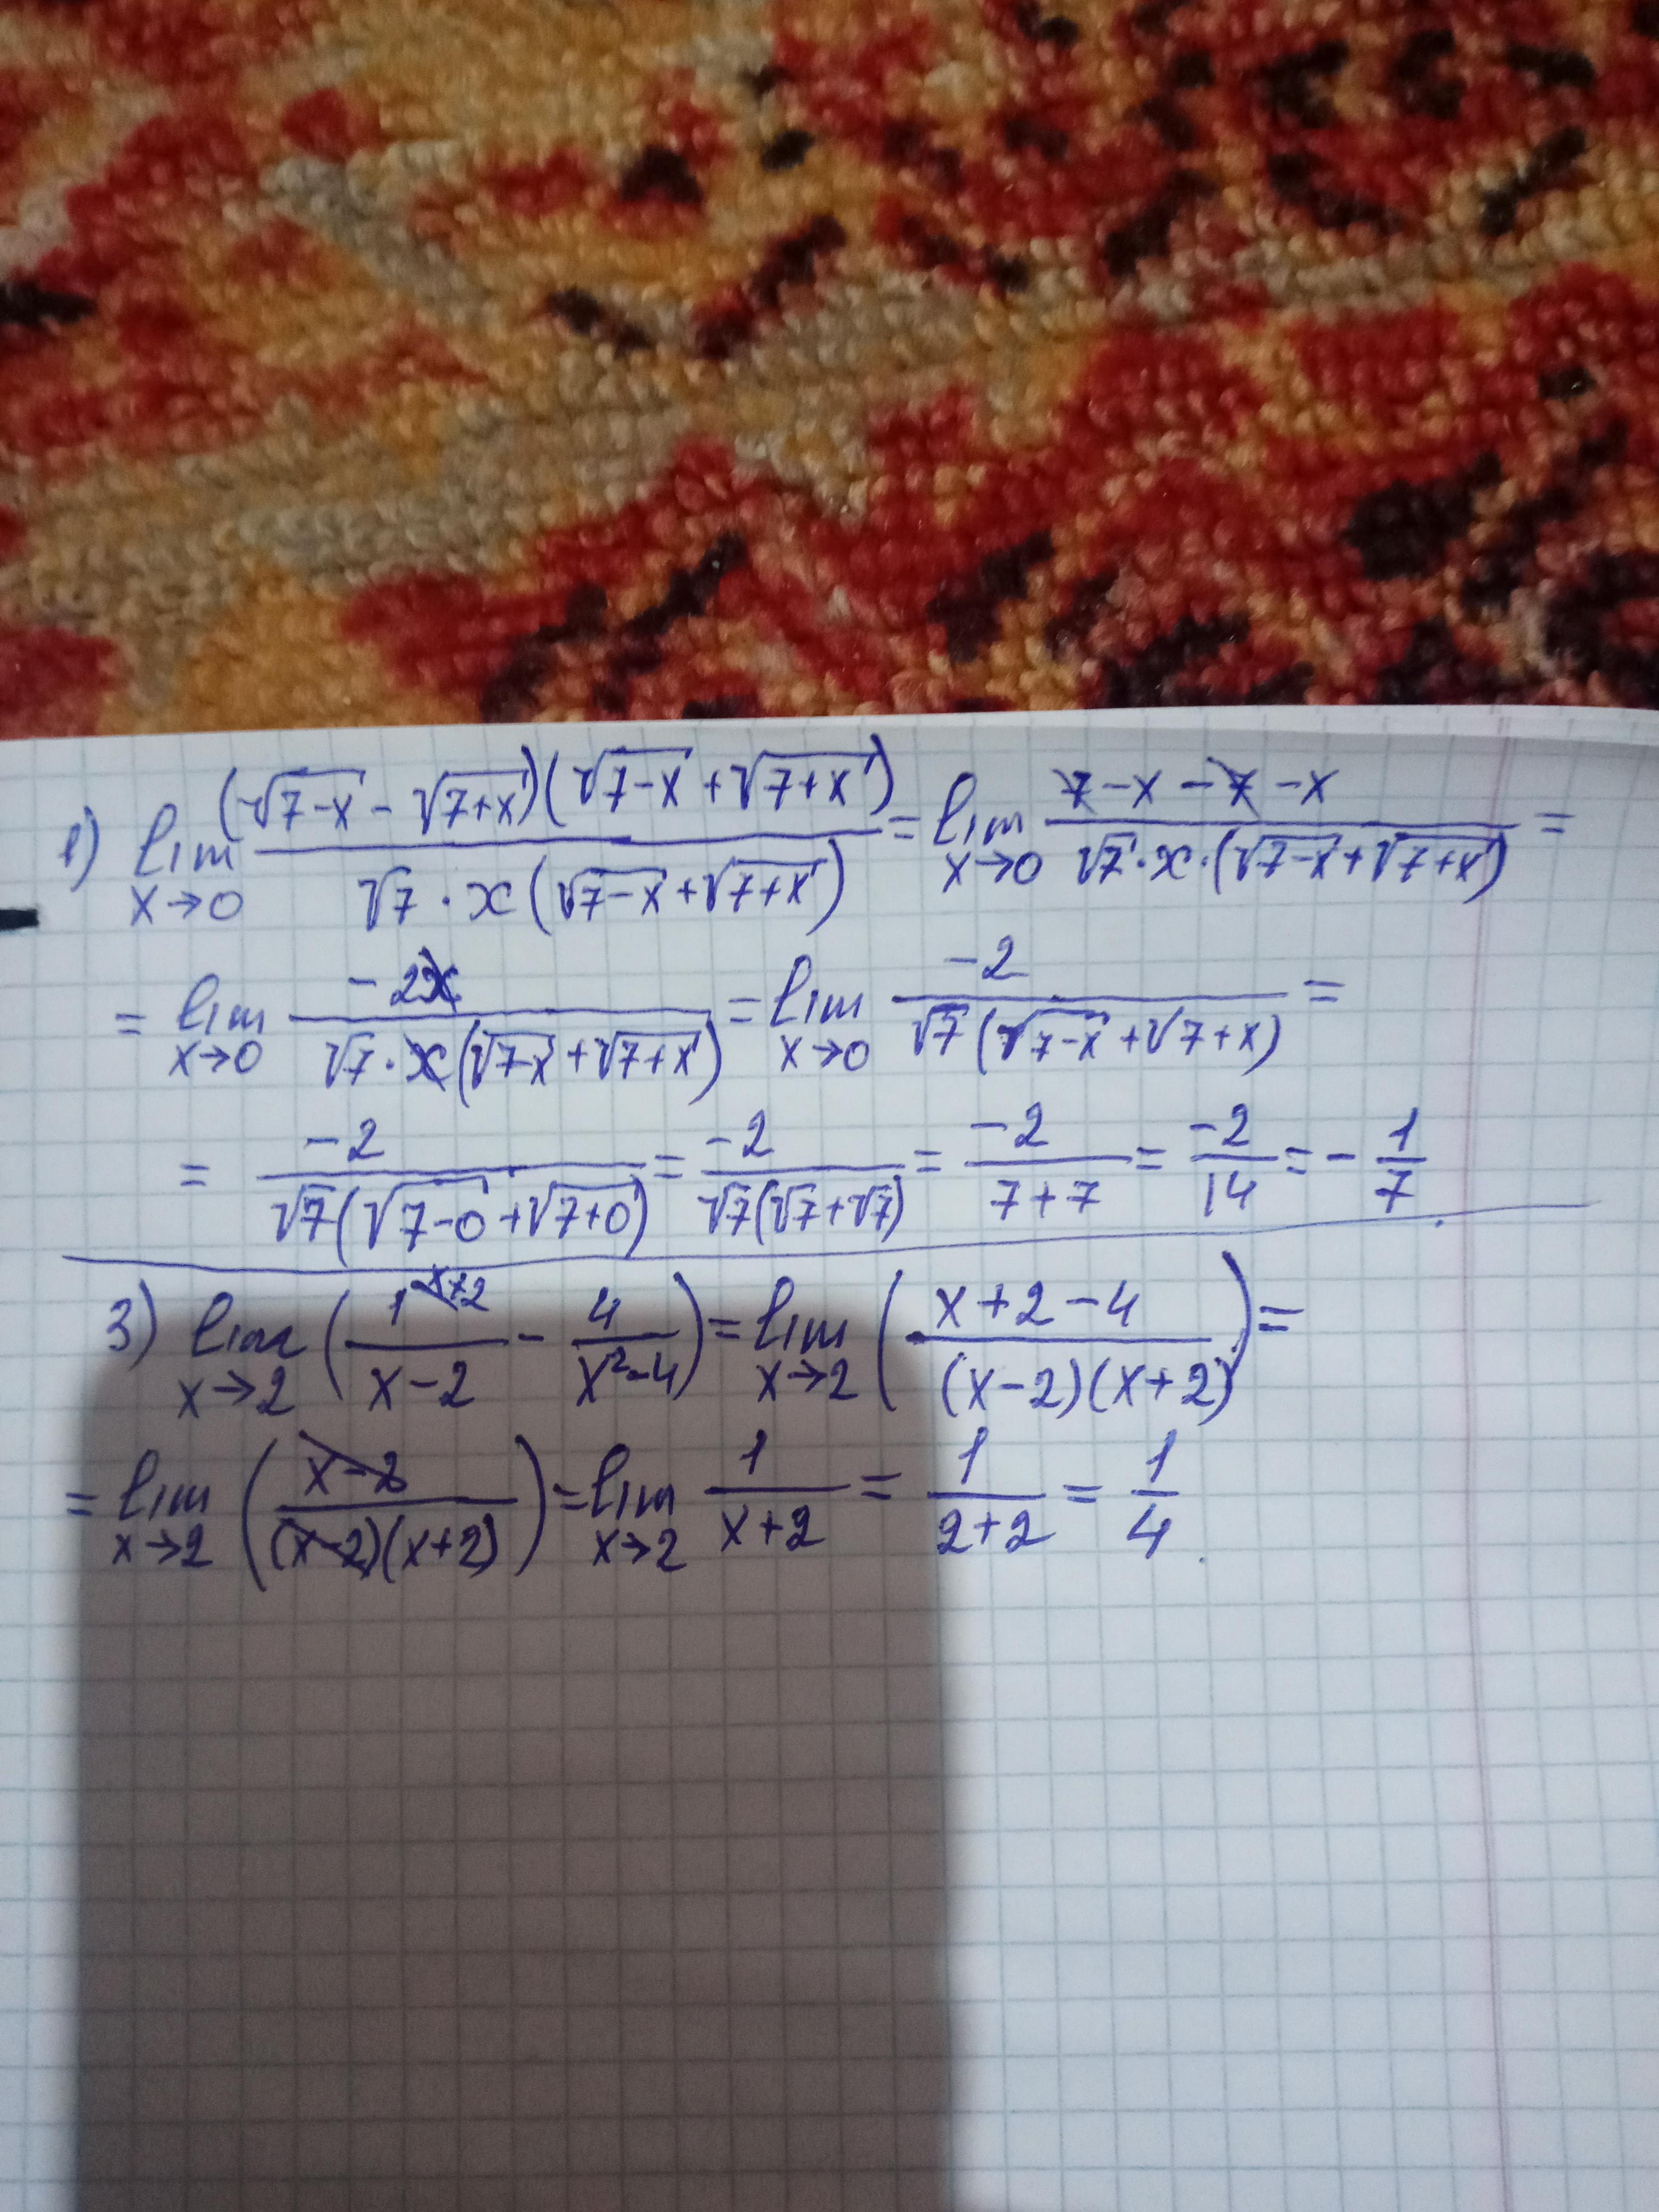 1) lim x→0 (√7-x - √7+x)(√7-x + √7+x) / √7 · x (√7-x + √7+x) = lim x→0 7-x-7-x / √7 · x · (√7-x + √7+x) =
= lim x→0 -2x / √7 · x (√7-x + √7+x) = lim x→0 -2 / √7 (√7-x + √7+x) =
= -2 / √7 (√7-0 + √7+0) = -2 / √7 (√7 + √7) = -2 / 7+7 = -2 / 14 = - 1 / 7.
3) lim x→2 (1 x+2 / x-2 - 4 / x²-4) = lim x→2 (x+2-4 / (x-2)(x+2)) =
= lim x→2 (x-2 / (x-2)(x+2)) = lim x→2 1 / x+2 = 1 / 2+2 = 1 / 4.